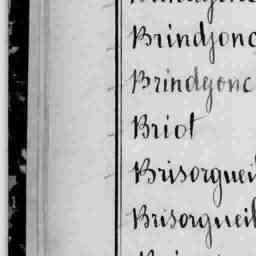 Brindjonc
Brindgonc
Briot
Brisorgueil
Brisorgueil